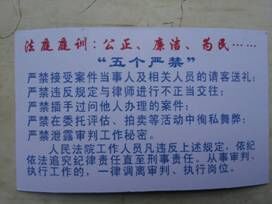 法庭庭训：公正、廉洁、为民……
“五个严禁”
严禁接受案件当事人及相关人员的请客送礼；
严禁违反规定与律师进行不正当交往；
严禁插手过问他人办理的案件；
严禁在委托评估、拍卖等活动中徇私舞弊；
严禁泄露审判工作秘密。
人民法院工作人员凡违反上述规定，依纪
依法追究纪律责任直至刑事责任。从事审判、
执行工作的，一律调离审判、执行岗位。